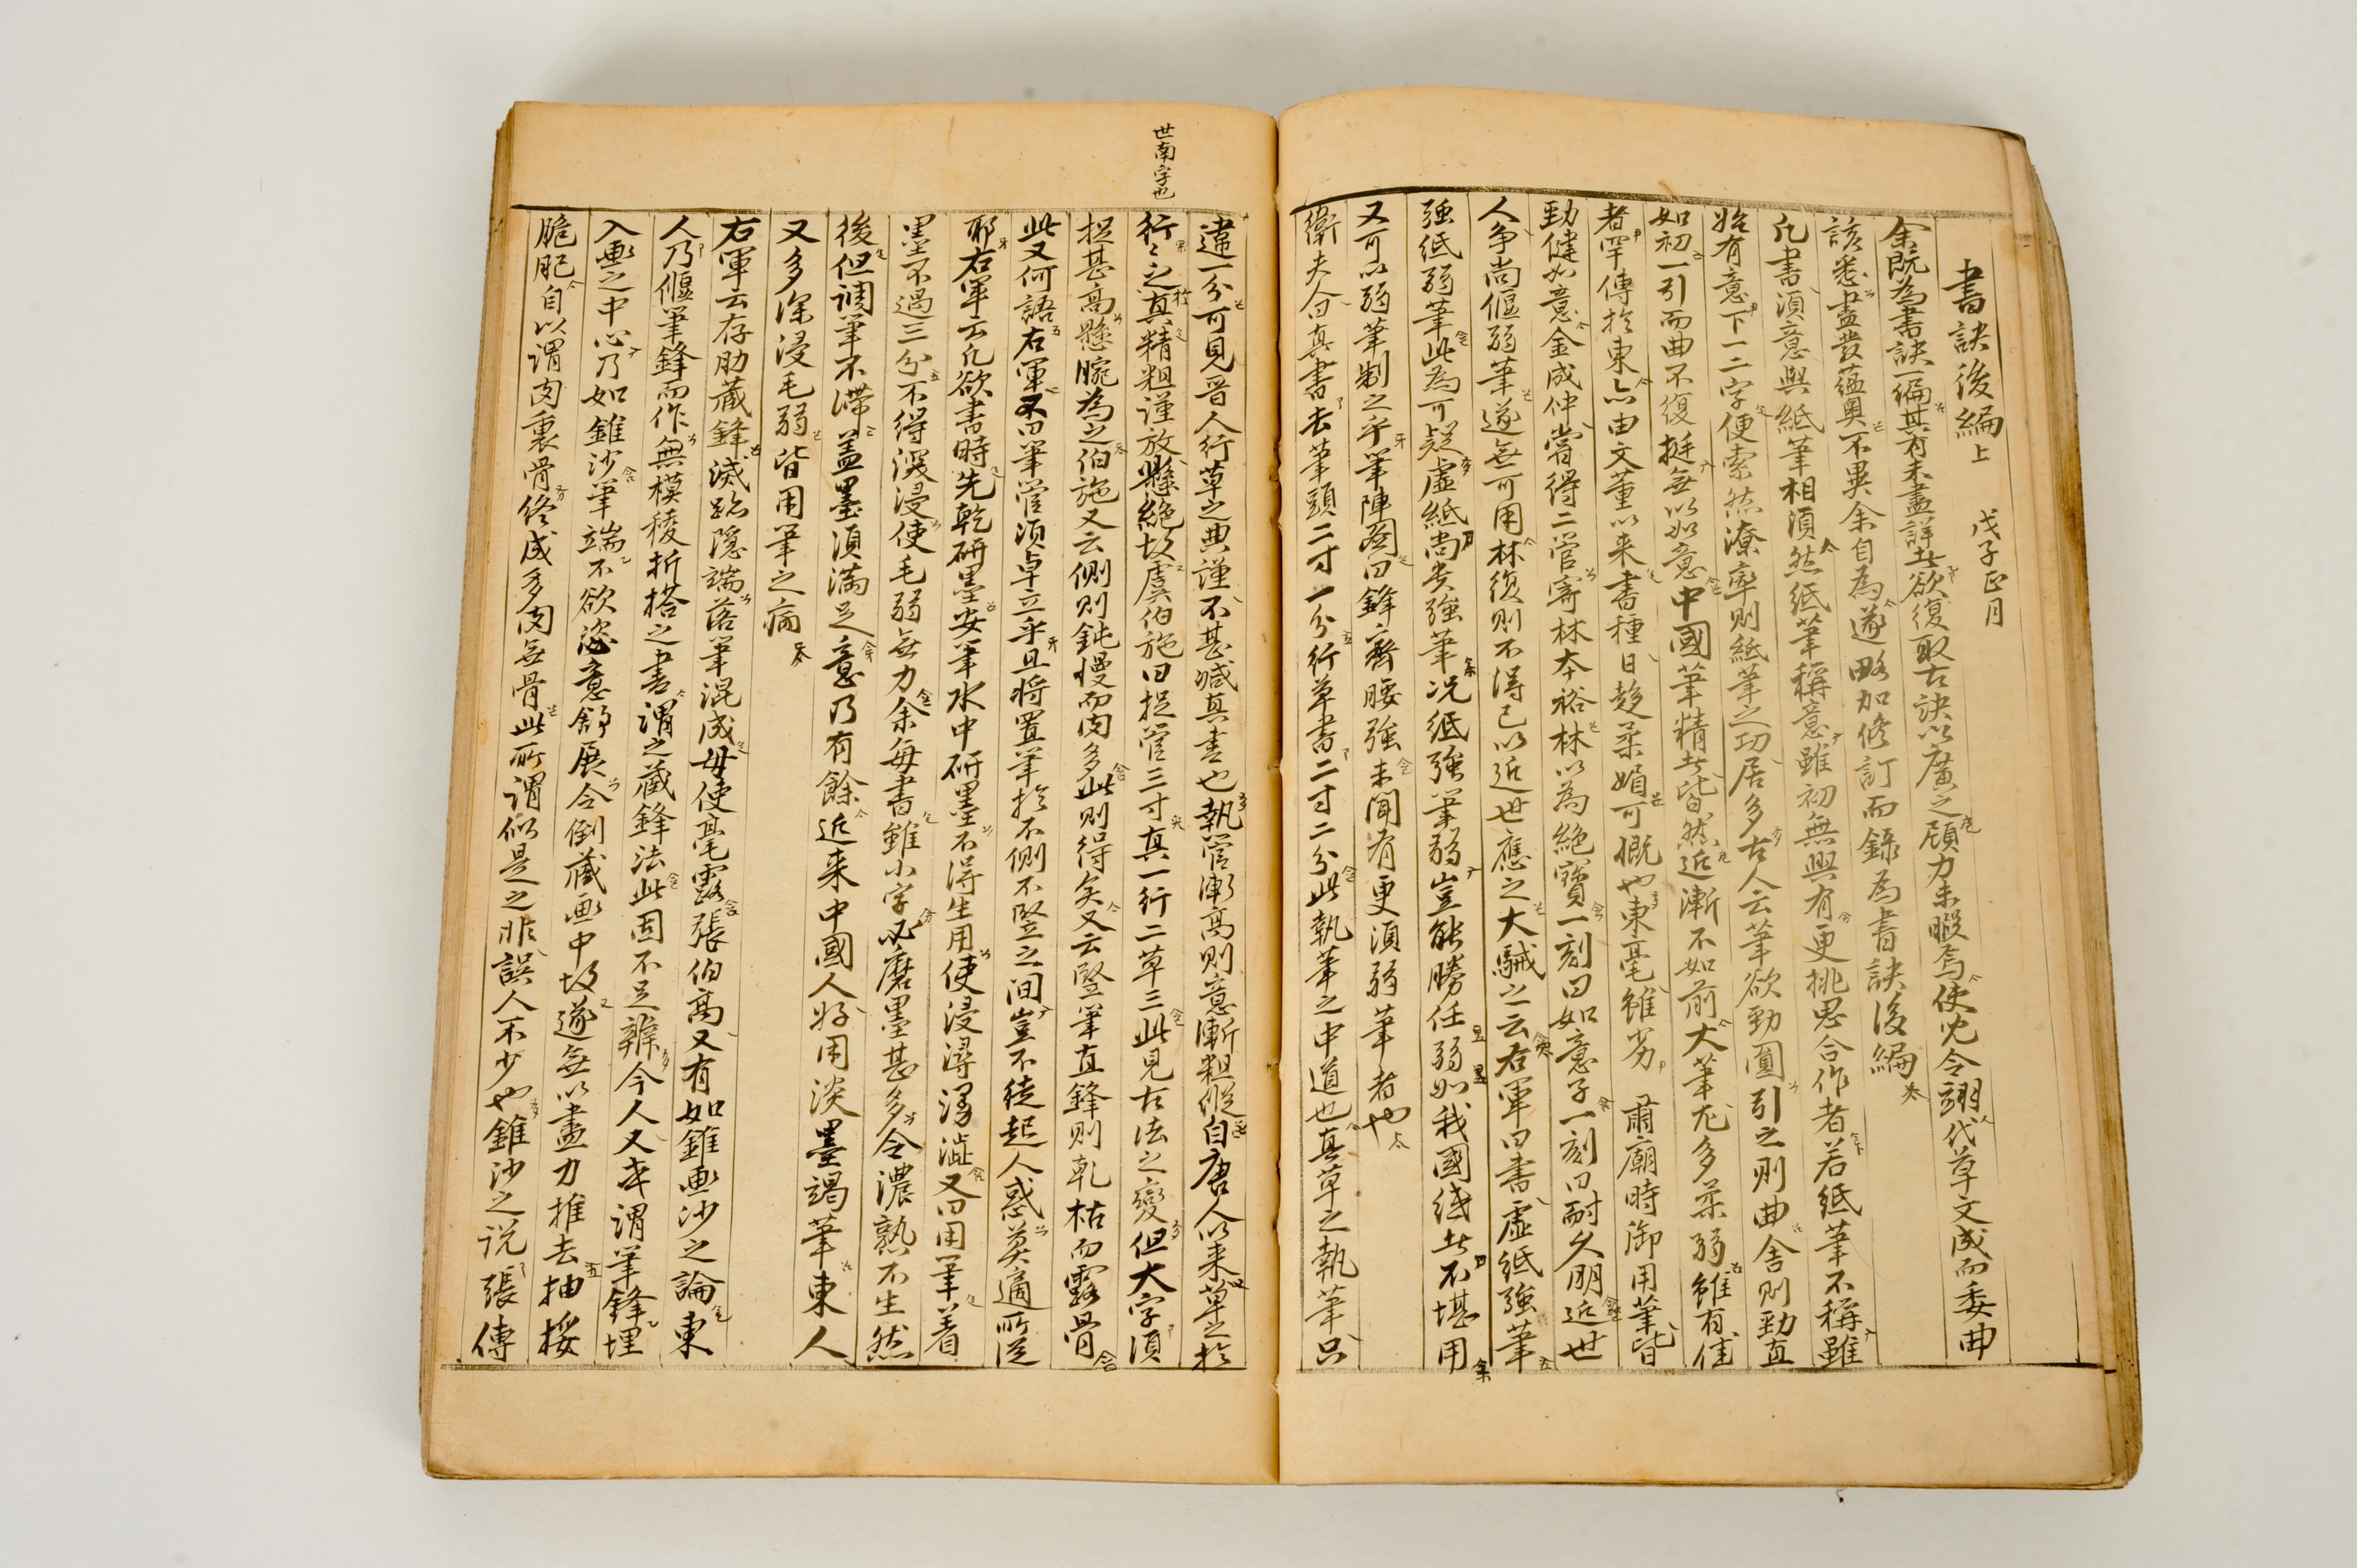 書訣後編上 戊子正月
余既為書訣一編其有未盡詳者欲復取古訣以廣之顧力未暇焉使兒令翊代草文成而委曲
該悉盡發蘊奧不異余自為遂略加修訂而錄為書訣後編
凡書須意與紙筆相須然紙筆稱意雖初無興有更挑思合作者若紙筆不稱雖
始有意下一二字便索然潦率則紙筆之功居多古人云筆欲勁圓引之則曲舍則勁直
如初一引而曲不復挺無以如意中國筆精者皆然近漸不如前大筆尤多柔弱雖有佳
者罕傳於東亦由文董以来書種日趍柔媚可慨也東毫雖劣 肅廟時御用筆皆
勁健如意金成仲嘗得二管寄林本裕林以為絕寶一刻曰如意子一刻曰耐久朋近世
人爭尚偃弱筆遂無可用林復則不得已以近世應之大駴之云右軍曰書虛紙強筆
強紙弱筆此為可疑虛紙尚貴強筆况紙強筆弱豈能勝任弱如我國者不堪用
又可以弱筆制之乎筆陣圖曰鋒齊腰強未聞有更須弱筆者也
衛夫人曰真書去筆頭二寸一分行草書二寸二分此執筆之中道也真草之執筆只
世南字也
違一分可見晉人行草之典謹不甚減真書也執管漸高則意漸粗縱自唐人以来草之於
行行之真精粗謹放懸絕故虞伯施曰捉管三寸真一行二草三此見古法之變但大字須
捉甚高懸腕為之伯施又云側則鈍慢而肉多此則得矣又云竪筆直鋒則乾枯而露骨
此又何語右軍不曰筆管須卓立乎且將置筆於不側不竪之間豈不徒起人惑莫適所從
耶右軍云凡欲書時先乾研墨安筆水中研墨不得生用使浸潯溻澁又曰用筆着
墨不過三分不得深浸使毛弱無力余每書雖小字必磨墨甚多令濃熟不生然
後但調筆不滯盖墨須滿足意乃有餘近来中國人好用淡墨渴筆東人
又多深浸毛弱皆用筆之病
右軍云存肋藏鋒滅跡隱端落筆混成毋使毫露張伯高又有如錐畫沙之論東
人乃偃筆鋒而作無模稜折搭之畫謂之藏鋒法此固不足辨今人又率謂筆鋒埋
入畫之中心乃如錐沙筆端不欲恣意舒展令倒藏畫中故遂無以盡力推去抽挼
脆肥自以謂肉裹骨終成多肉無骨此所謂似是之非誤人不少也錐沙之說張傳